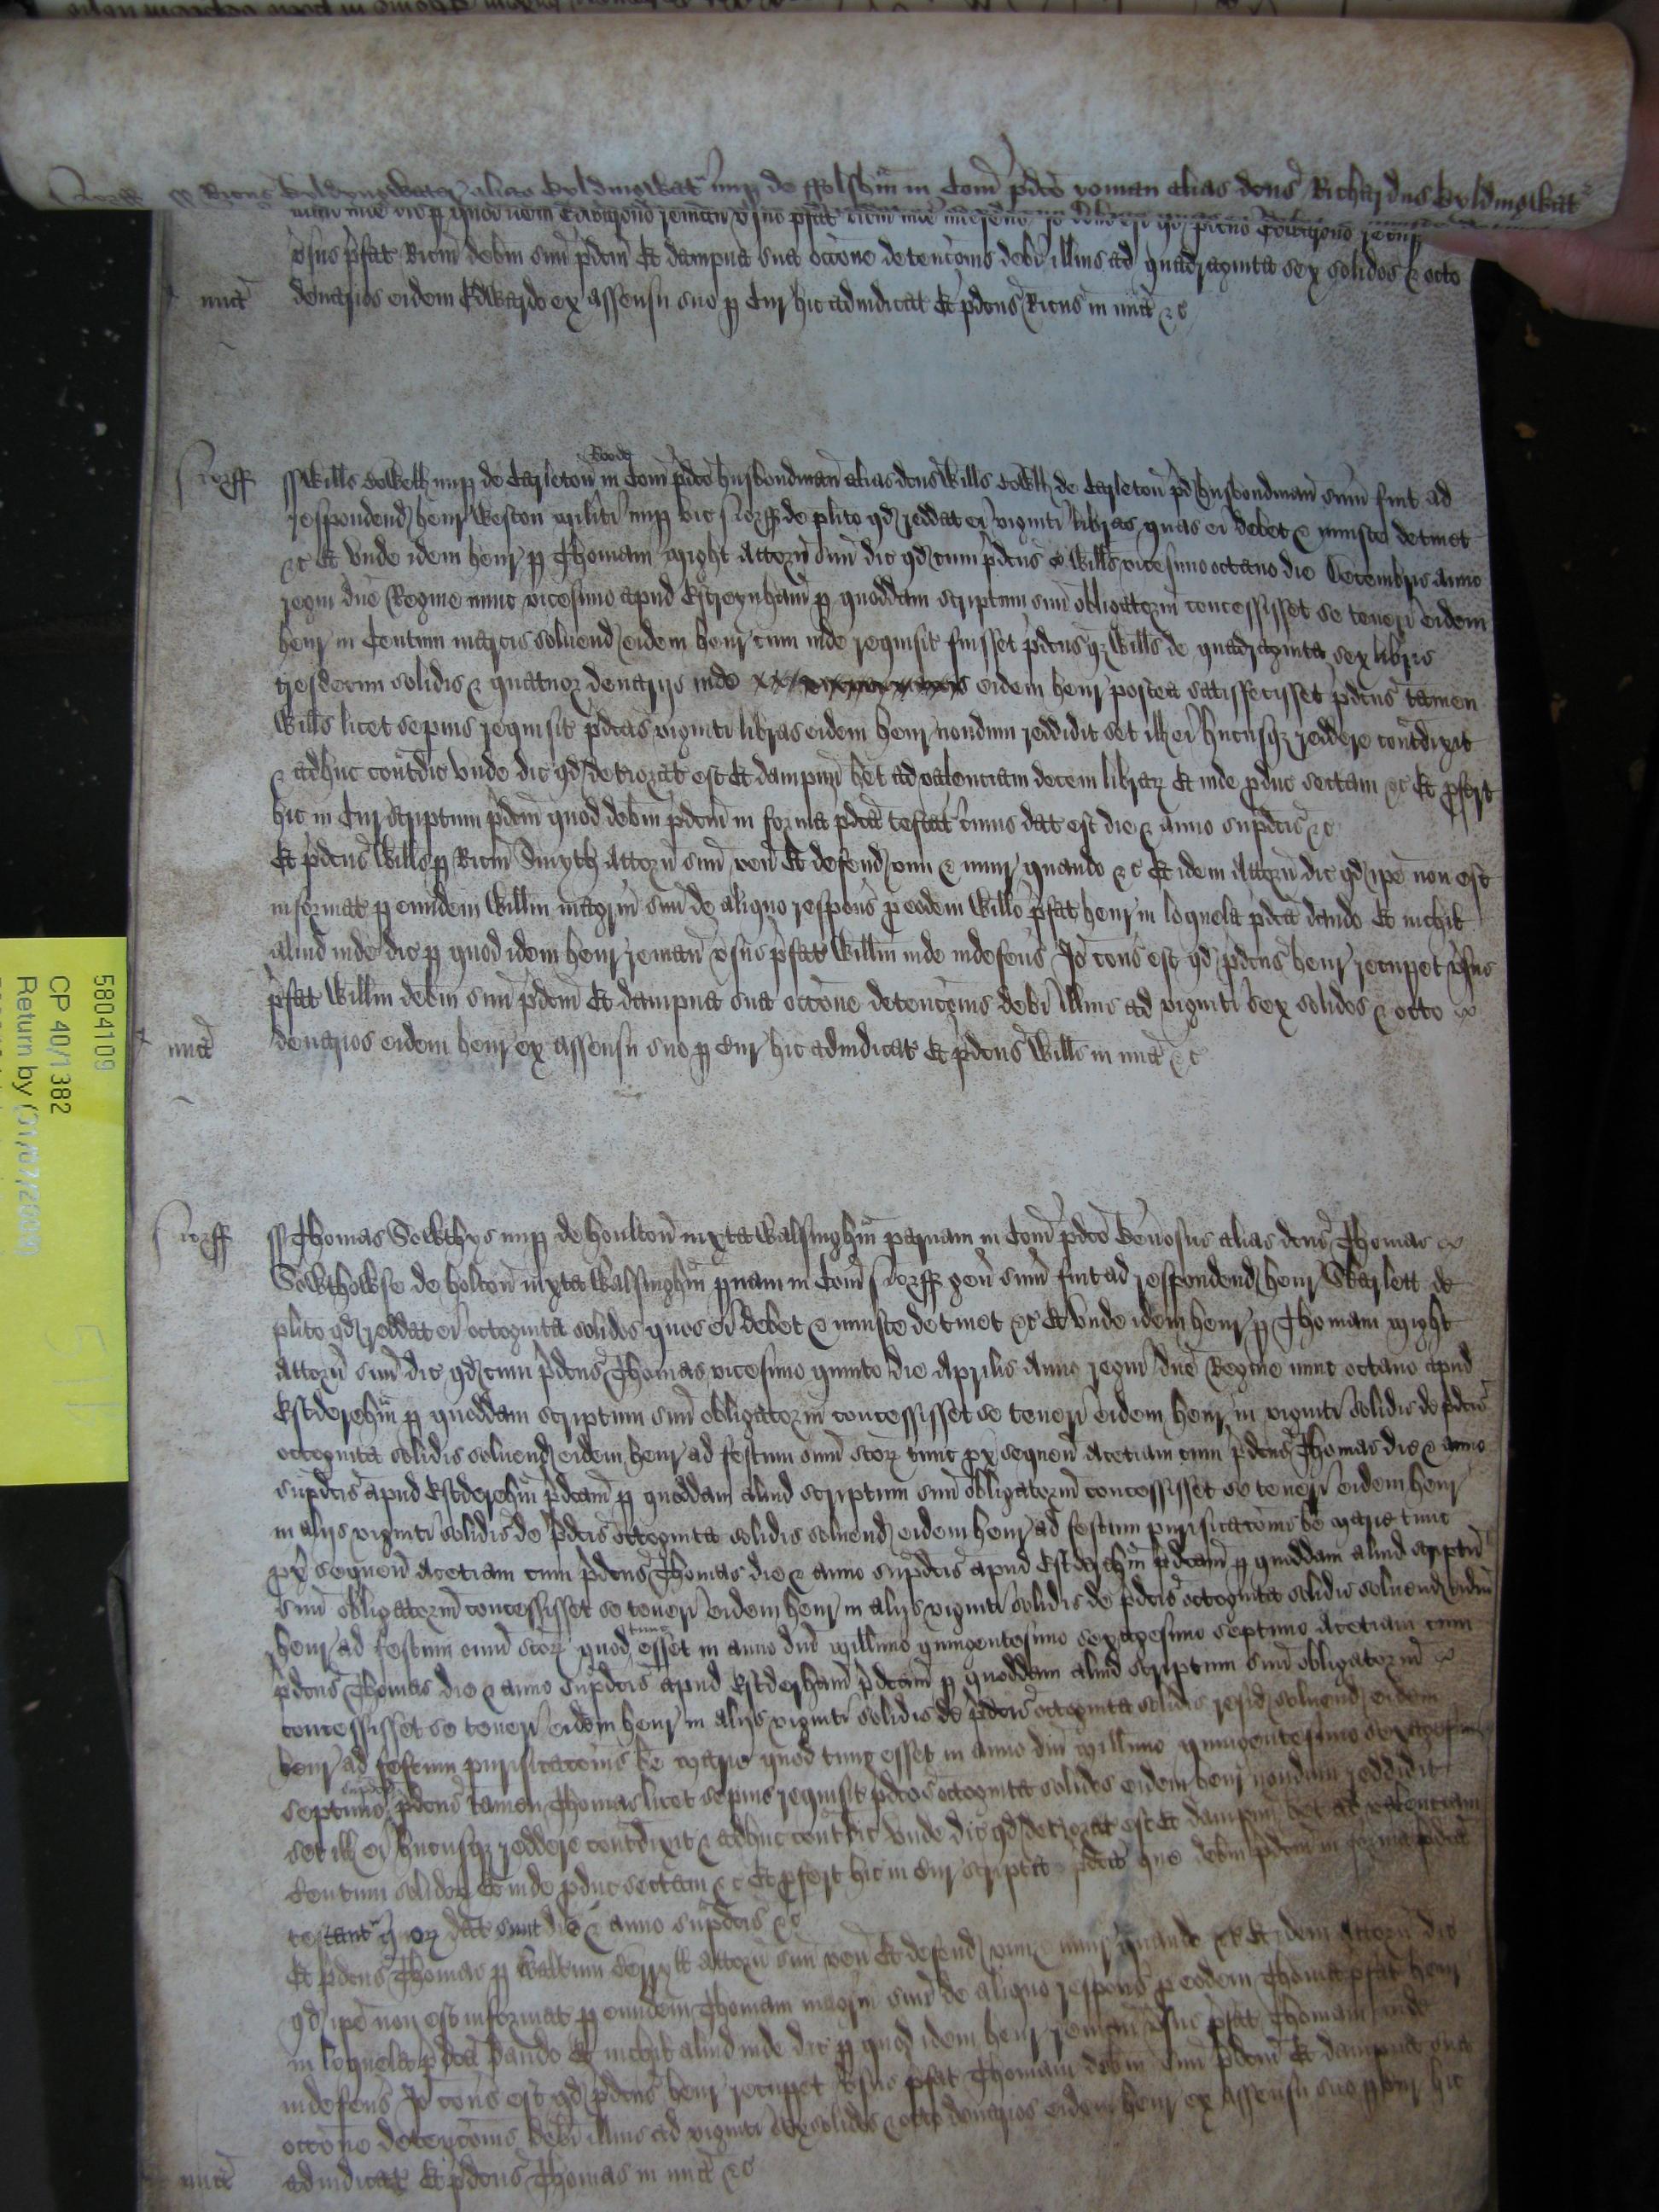 Norff Ricus alias nup de ffolsham in Com pdco yoman alias dcus Richardus
vsus pfat Ricm debm suu pdcm Et dampna sua occone detencois debi illius ad quadraginta sex solidos & octo
mia denarios eidem Edwardo ex assensu suo p Cur hic adiudicat Et pdcus Ricus in mia &c
Norff ss Wills nup de Carleton Roode in Com pdco husbondman alias dcus Wills de Carleton pd husbondman sum fuit ad
respondend Henr Weston militi nup vic Norff de plito qd reddat ei viginti libras quas ei debet & iniuste detinet
&c Et unde idem Henr p Thomam Might Attorn suu dic qd cum pdcus Wills vicesimo octavo die Decembris anno
regni dne Regine nunc vicesimo apud p quoddam scriptum suu obligatorm concessisset se teneri eidem
Henr in Centum marcis solvend eidem Henr cum inde requisit fuisset pdcusqz Wills de quadraginta sex libris
tresdecim solidis & quatuor denariis inde eidem Henr postea satisfecisset pdcus tamen
Wills licet sepius requisit pdcas viginti libras eidem Henr nondum reddidit set ill ei hucusqz reddere contdixit
& adhuc contdic unde dic qd deteriorat est Et dampnu het ad valenciam decem librar Et inde pduc sectam &c Et pfert
hic in Cur scriptum pdcm quod debm pdcm in forma pdca testat cuius dat est die & anno supdcis &c
Et pdcus Wills p Ricm Smyth Attorn suu ven Et defend vim & iniur quando &c Et idem Attorn dic qd ipe non est
informat p eundem Willm magrm suu de aliquo respons p eodem Willo pfat Henr in loquela pdca dando Et nichil
aliud inde dic p quod idem Henr reman vsus pfat Willm inde indefens Io cons est qd pdcus Henr recupet vsus
pfat Willm debm suu pdcm Et dampna sua occone detencois debi illius ad viginti sex solidos & octo
mia denarios eidem Henr ex assensu suo p Cur hic adiudicat Et pdcus Wills in mia &c
Norff ss Thomas Sowthys nup de Houlton iuxta Walsinghm parvam in Com pdco genosus alias dcus Thomas
Sowthowse de Holton iuxta Walsinghm pvam in Com Norff gen sum fuit ad respondend Henr Skarlett de
plito qd reddat ei octoginta solidos quos ei debet & iniuste detinet &c Et unde idem Henr p Thomam Might
Attorn suu dic qd cum pdcus Thomas vicesimo quinto die Aprilis Anno regni dne Regine nunc octavo apud
Estderehm p quoddam scriptum suu obligatorm concessisset se teneri eidem Henr in viginti solidis de pdcis
octoginta solidis solvend eidem Henr ad festum oim scor tunc px sequen Acetiam cum pdcus Thomas die & anno
supdcis apud Estderehm pdcam p quoddam aliud scriptum suu obligatorm concessisset se teneri eidem Henr
in aliis viginti solidis de pdcis octoginta solidis solvend eidem Henr ad festum purificacois be Marie tunc
px sequen Acetiam cum pdcus Thomas die & anno supdcis apud Estderehm pdcam p quoddam aliud scriptu
suu obligatorm concessisset se teneri eidem Henr in aliis viginti solidis de pdcis octoginta solidis solvend eidm
Henr ad festum oim scor quod tunc esset in anno dni millimo quingentesimo sexagesimo septimo Acetiam cum
pdcus Thomas die & anno supdcis apud Estderham pdcam p quoddam aliud scriptum suu obligatorm
concessisset se teneri eidem Henr in aliis viginti solidis de pdcis octoginta solidis resid solvend eidem
Henr ad festum purificacois be Marie quod tunc esset in anno dni millimo quingentesimo sexagesimo
septimo supdco pdcus tamen Thomas licet sepius requisit pdcos octoginta solidos eidem Henr nondum reddidit
set ill ei hucusqz reddere contdixit & adhuc contdic unde dic qd deteriorat est Et dampnu het ad valenciam
Centum solidor Et inde pduc sectam &c Et pfert hic in Cur scripta pdca que debm pdcm in forma pdca
testant quor dat sunt die & anno supdcis &c
Et pdcus Thomas p Waltum Attorn suu ven Et defend vim & iniur quando &c Et idem Attorn dic
qd ipe non est informat p eundem Thomam magrm suu de aliquo respons p eodem Thoma pfat Henr
in loquela pdca dando Et nichil aliud inde dic p quod idem Henr reman vsus pfat Thomam inde
indefens Io cons est qd pdcus Henr recupet vsus pfat Thomam debm suu pdcm Et dampna sua
occone detencois debi illius ad viginti sex solidos & octo denarios eidem Henr ex assensu suo p Cur hic
mia adiudicat Et pdcus Thomas in mia &c
5804109
CP 40/1382
Return by (31/07/2009)